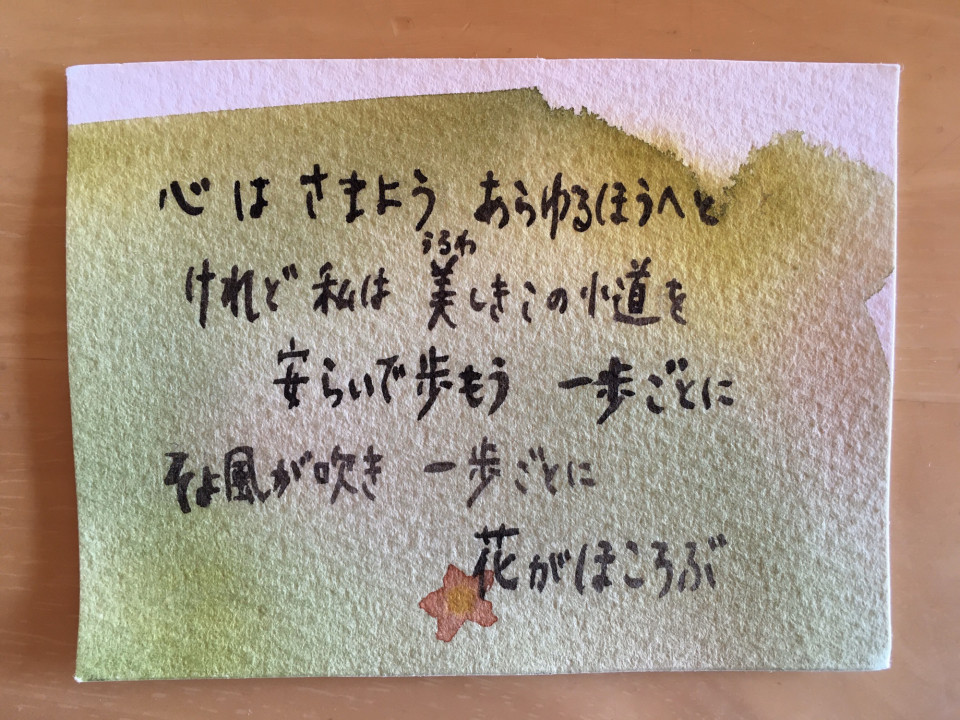 心は さまよう あらゆるほうへと
うるわ
けれど 私は 美しきこの小道を
安らいで歩もう 一歩ごとに
そよ風が吹き 一歩ごとに
花がほころぶ